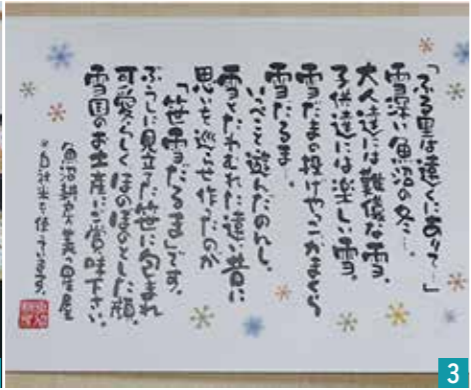 「ふる里は遠くにありて…」
雪深い魚沼の冬…。
大人達には難儀な雪。
子供達には楽しい雪。
雪だまの投げやっこかまくら
雪だるま…。
いっぺこと遊んだのんし。
雪とたわむれた遠い昔に
思いを巡らせ作ったのが
「笹雪だるま」です。
ぶうしに見立てた笹に包まれ
可愛らしくほのぼのとした顔。
雪国のお土産にご賞味下さい。
魚沼
屋
※自社米を使っています。
3